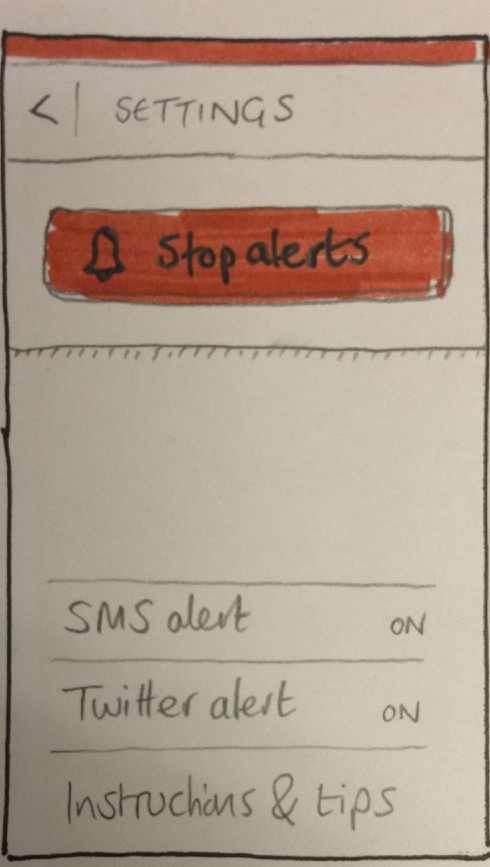 < | SETTINGS
Stop alerts
SMS alert ON
Twitter alert ON
Instructions & tips